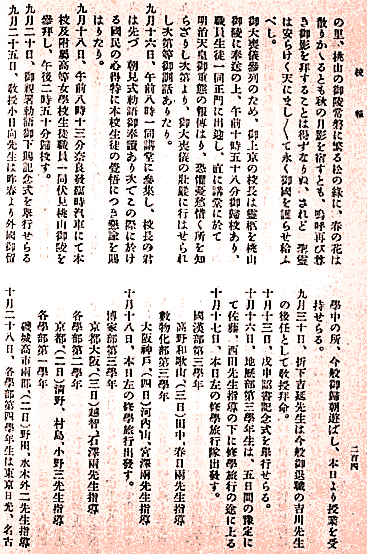 校報
二百四
の里、桃山の御陵常磐に繁る松の綠に、春の花は
散りかゝるとも秋の月影を宿すとも、嗚呼再び尊
き御影を拜することは得ずなりぬ、されど 聖靈
は安らけく天にまし〳〵て永く御國を護らせ給ふ
べし。
御大喪儀參列のため、御上京の校長は靈柩を桃山
御陵に奉送の上、午前十時五十八分御歸校あり、
職員生徒一同正門に出迎し、直に講堂に於て
明治天皇御重態の報傳はり、恐懼憂愁措く所を知
らざりし次第より、御大喪儀の壯嚴に行はせられ
し次第等御訓話ありたり。
九月十六日、午前八時一同講堂に參集し、校長の君
は先づ 朝見式勅語御奉讀あり來てこの際に於け
る國民の心得特に本校生徒の覺悟につき懇諭を賜
はりたり。
九月十八日、午前八時十三分奈良發臨時汽車にて本
校及附屬高等女學校生徒職員一同伏見桃山御陵を
參拜し、午後二時五十分歸校す。
九月二十日、御親署勅語御下賜記念式を擧行せらる
九月二十五日、教授小日向先生は昨春より外國御留
學中の所、今般御歸朝遊ばし、本日より授業を受
持せらる。
九月三十日、折下吉延先生は今般御退職の吉川先生
の後任として教授拜命。
十月十三日、戊申詔書記念式を擧行せらる。
十月十六日、地歷部第三學年生は、五日間の豫定に
て佐藤、西田先生指導の下に修學旅行の途に上る
十月十七日、本日左の修學旅行隊出發す。
國漢部第三學年
高野和歌山(三日)田中、春日兩先生指導
數物化部第三學年
大阪神戶(四日)河內山、宮澤兩先生指導
十月十八日、本日左の修學旅行出發す。
博家部第三學年
京都大阪(三日)越智、石澤兩先生指導
各學部第二學年
京都(二日)淸野、村島、小野三先生指導
各學部第一學年
磯城高市兩郡(二日)野田、水木外二先生指導
十月二十八日、各學部第四學年生は東京日光、名古